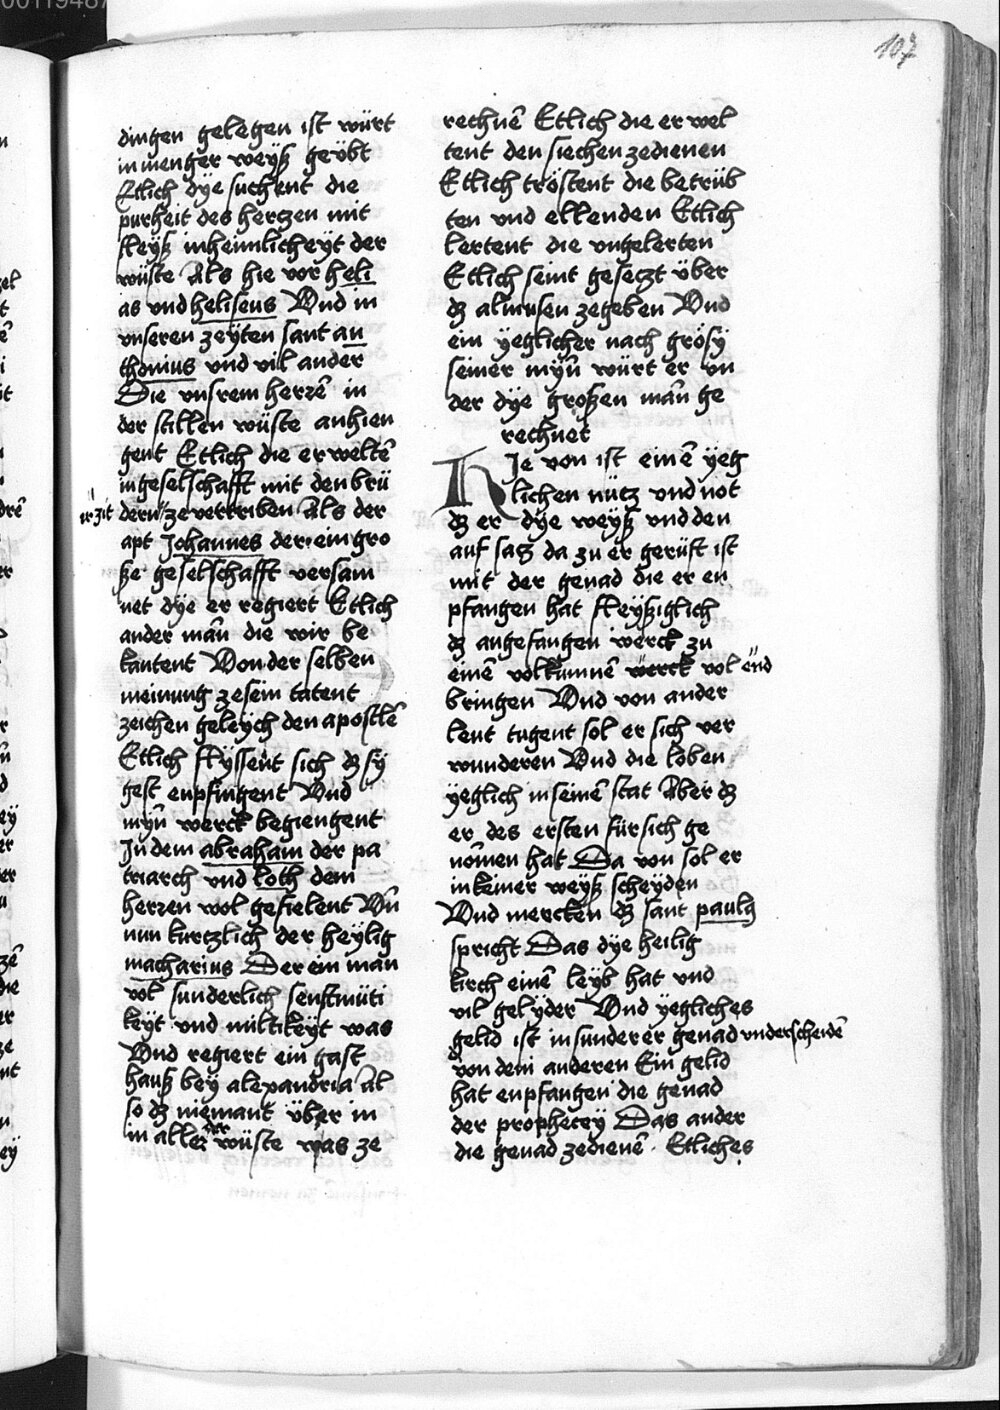 107
dingen gelegen ist würt
in menger weyß geübt
Etlich dye suchent die
purheit des hertzen mit
fleyß in heimlicheyt der
wüste Als hie vor heli
as vnd heliseus Vnd in
vnseren zeyten sant an
thonius vnd vil ander
Die vnsrem herrē in
der stillen wüste anhien
gent Etlich die erweltē
in geselschafft mit den brü
ir zit dern ze vertriben Als der
apt Johannes der ein gro
ße geselschafft versam
net dye er regiert Etlich
ander mān die wir be
kantent Von der selben
meinung ze sein tatent
zeichen geleych den apostlē
Etlich flyssent sich dz sy
gest enpfingent Vnd
myn̄ werck begiengent
In dem abraham der pa
triarch vnd loth dem
herren wol gefielent Vn̄
nun kurtzlich der heylig
macharius Der ein man
vol sunderlich senftmüti
keyt vnd miltikeyt was
Vnd regiert ein gast
hauß bey alexandria Al
so dz niemant über in
in aller der wüste was ze
rechnē Etlich die er wel
tent den siechen zedienen
Etlich tröstent die betrüb
ten vnd ellenden Etlich
lertent die vngelerten
Etlich seint gesetzt über
dz almusen zegeben Vnd
ein yeglicher nach grösy
seiner myn̄ würt er vn
der dye großen mān ge
rechnet
Hje von ist einē yeg
lichen nütz vnd not
dz er dye weyß vnd den
auf satz da zu er gerüft ist
mit der genad die er en
pfangen hat fleyßiglich
dz angefangen werck zu
einē volkumnē werck vol end
bringen Vnd von ander
leut tugent sol er sich ver
wunderen Vnd die loben
yeglich in seinē stat Aber dz
er des ersten für sich ge
nōmen hat Da von sol er
in keiner weyß scheyden
Vnd mercken dz sant pauls
spricht Das dye heilig
kirch einē leyb hat vnd
vil gelyder Vnd yegliches
gelid ist in sunderer genad vnderscheidē
von dem anderen Ein gelid
hat enpfangen die genad
der prophecey Das ander
die genad zedienē Etliches